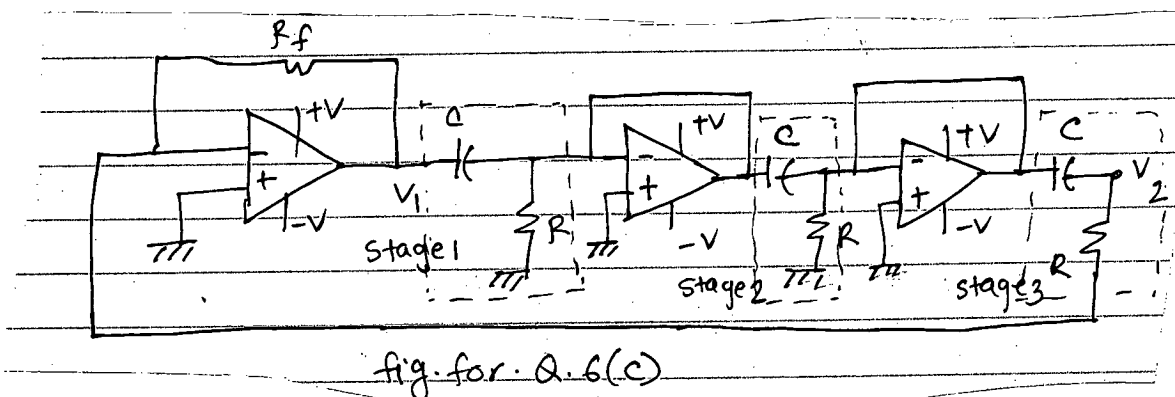 Rf
+V
-
+
-V
V1
C
R
stage1
+V
-
+
-V
C
R
stage2
+V
-
+
-V
C
V2
R
stage3
fig. for. Q.6(C)